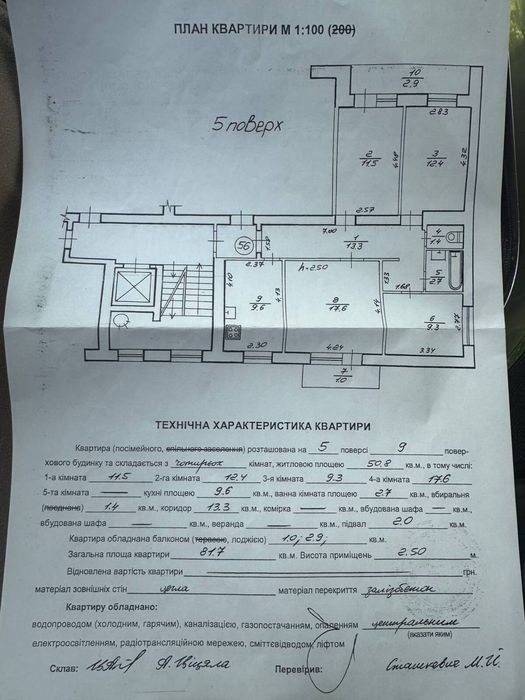 ПЛАН КВАРТИРИ М 1:100 (200)
10
2.9
2.83
5 поверх
2
11.5
4.48
3
12.4
4.32
2.57
7.00
56
1.50
1
13.3
4
1.4
2.37
h=2.50
1.33
5
2.7
1.68
4.10
9
9.6
4.13
8
17.6
4.14
6
9.3
2.77
2.30
4.24
3.34
7
1.0
ТЕХНІЧНА ХАРАКТЕРИСТИКА КВАРТИРИ
Квартира (посімейного, спільного заселення) розташована на 5 поверсі 9 повер-
хового будинку та складається з чотирьох кімнат, житловою площею 50,8 кв.м., в тому числі:
1-а кімната 11.5 2-га кімната 12,4 3-я кімната 9.3 4-а кімната 17.6
5-та кімната — кухні площею 9.6 кв.м., ванна кімната площею 2.7 кв.м., вбиральня
(поєднана) 1.4 кв.м., коридор 13.3 кв.м., комірка — кв.м., вбудована шафа — кв.м.,
вбудована шафа — кв.м., веранда — кв.м., підвал 2.0 кв.м.
Квартира обладнана балконом (терасою, лоджією) 1.0; 2.9; кв.м.
Загальна площа квартири 81.7 кв.м. Висота приміщень 2.50 м.
Відновлена вартість квартири — грн.
матеріал зовнішніх стін цегла матеріал перекриття залізбетон
Квартиру обладнано:
водопроводом (холодним, гарячим), каналізацією, газопостачанням, опаленням центральним
(вказати яким)
електроосвітленням, радіотрансляційною мережею, сміттєвідводом, ліфтом
Склав: Перевірив: Сташкевич М.Й.